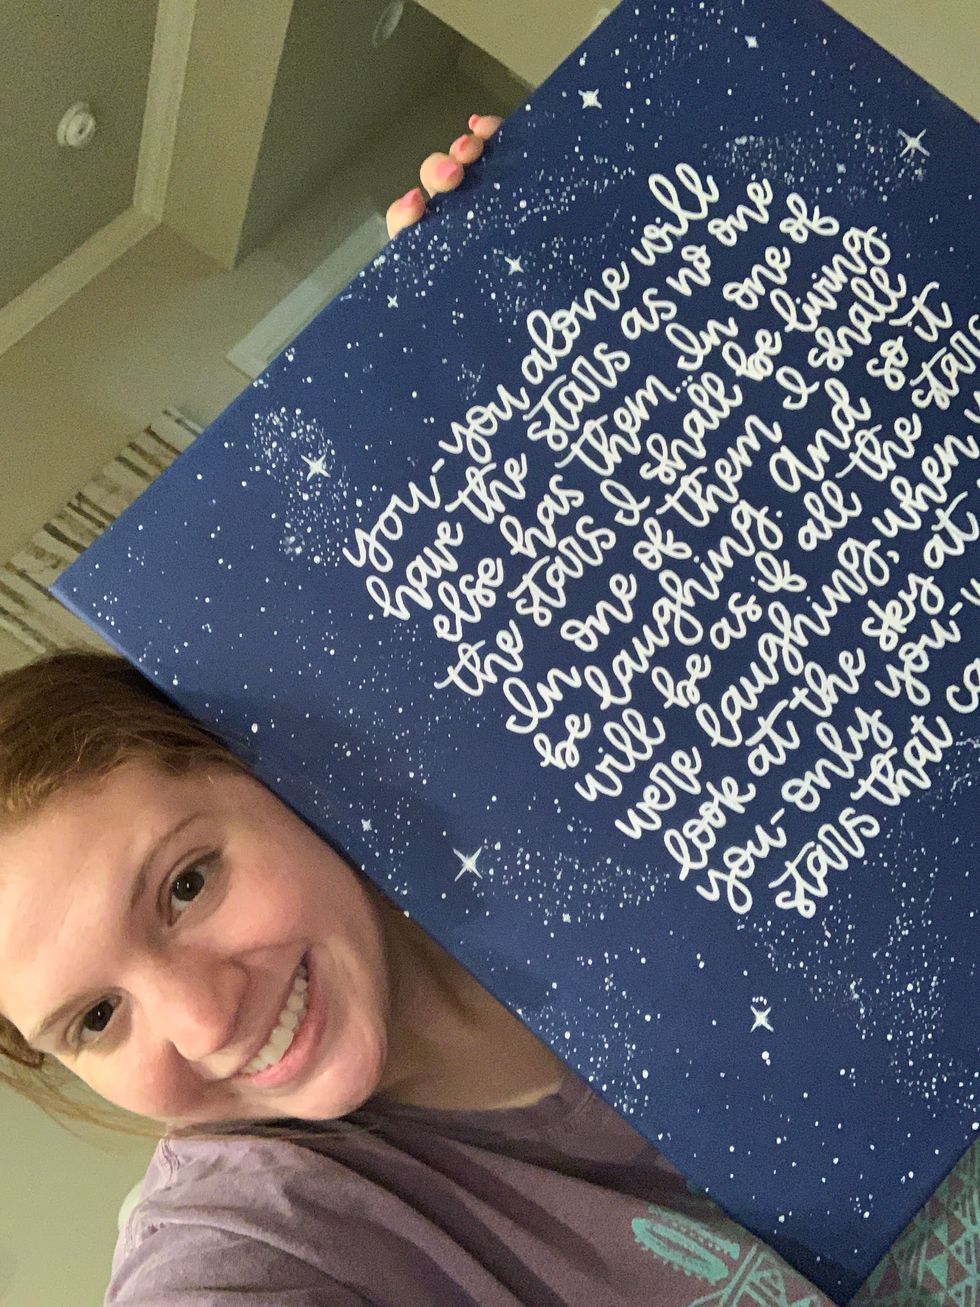 you-you alone will
have the stars as no one
else has them... In one of
the stars I shall be living.
In one of them I shall
be laughing. And so it
will be as if all the star
were laughing, when
look at the sky at
you-only you-
stars that